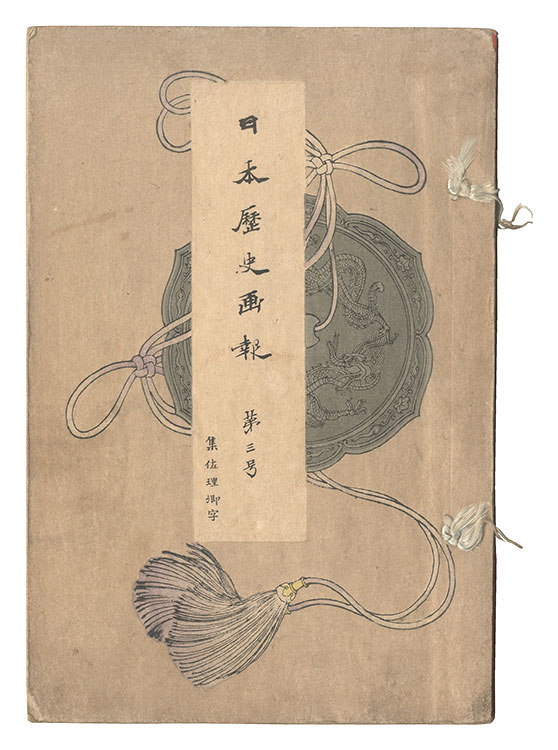 日本歷史画報 第三号
集佐理卿字